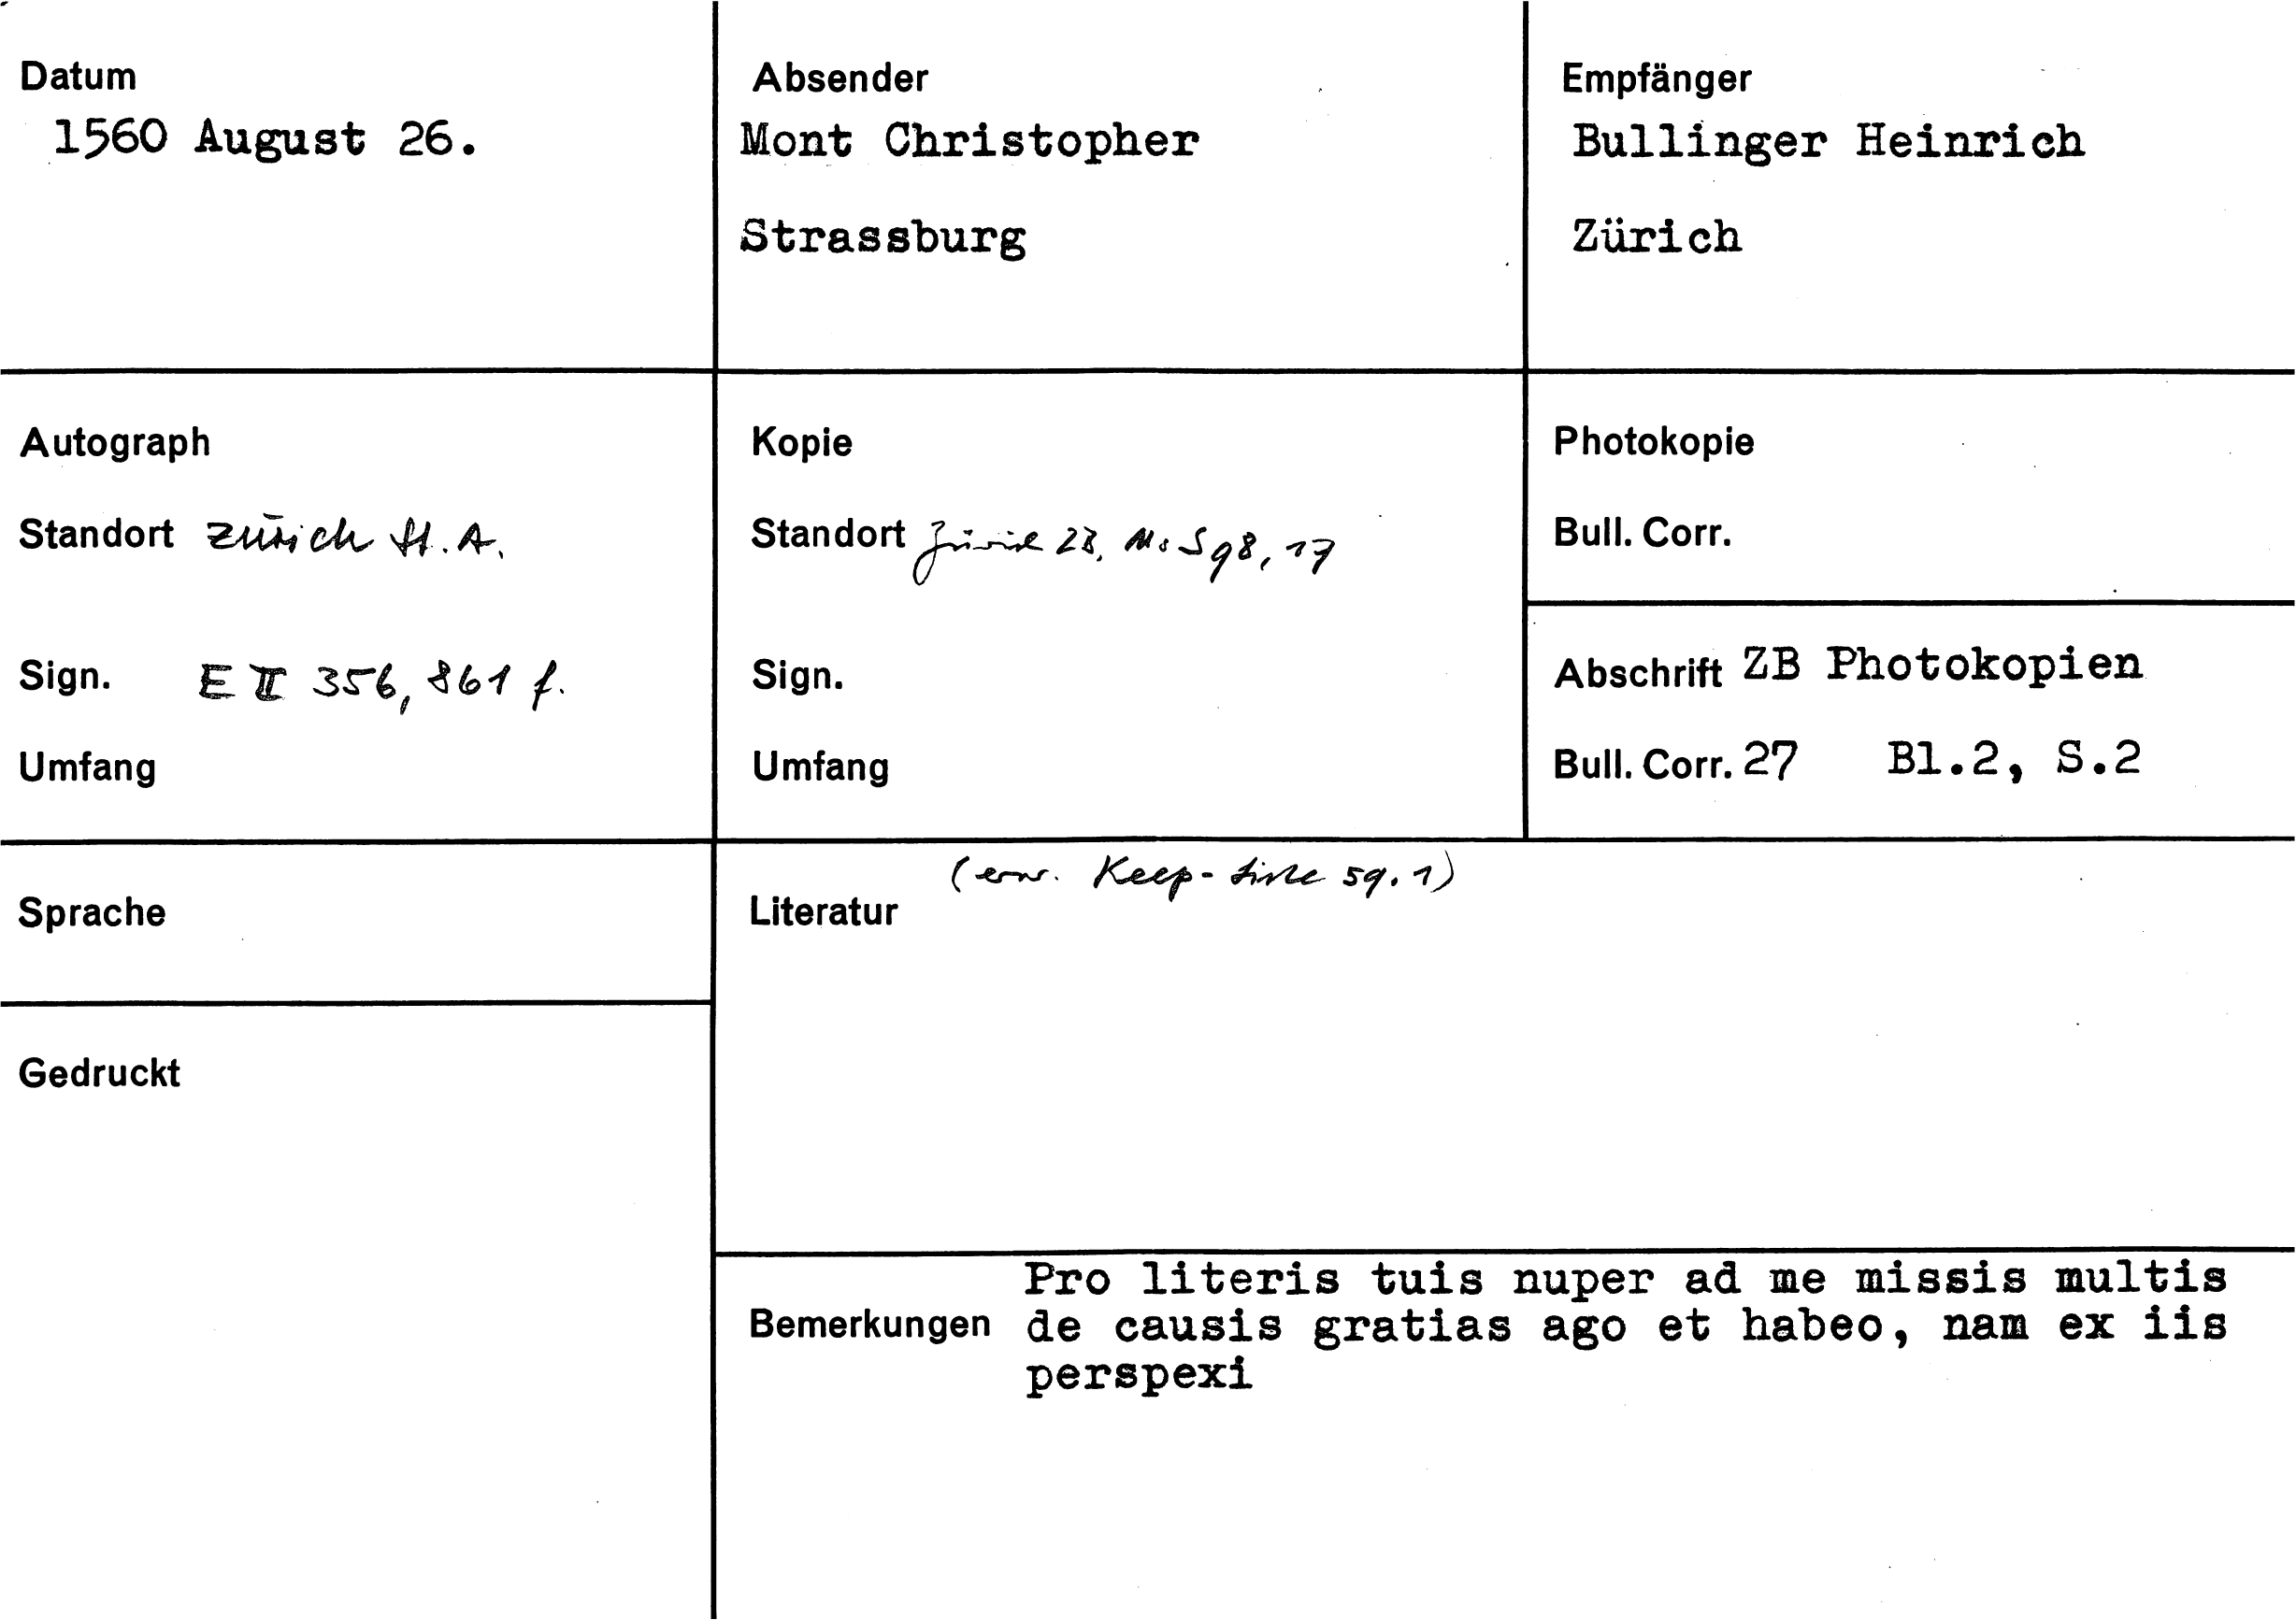 Datum
1560 August 26.
Absender
Mont Christopher
Strassburg
Empfänger
Bullinger Heinrich
Zürich
Autograph
Standort Zürich St. A.
Sign. E II 356, 861 f.
Umfang
Kopie
Standort Zürich ZB, Ms S 98, 17
Sign.
Umfang
Photokopie
Bull. Corr.
Abschrift ZB Photokopien
Bull. Corr. 27 Bl.2, S.2
Sprache
Gedruckt
(erw. Keep-Liste 59.1)
Literatur
Pro literis tuis nuper ad me missis multis
Bemerkungen de causis gratias ago et habeo, nam ex iis
perspexi